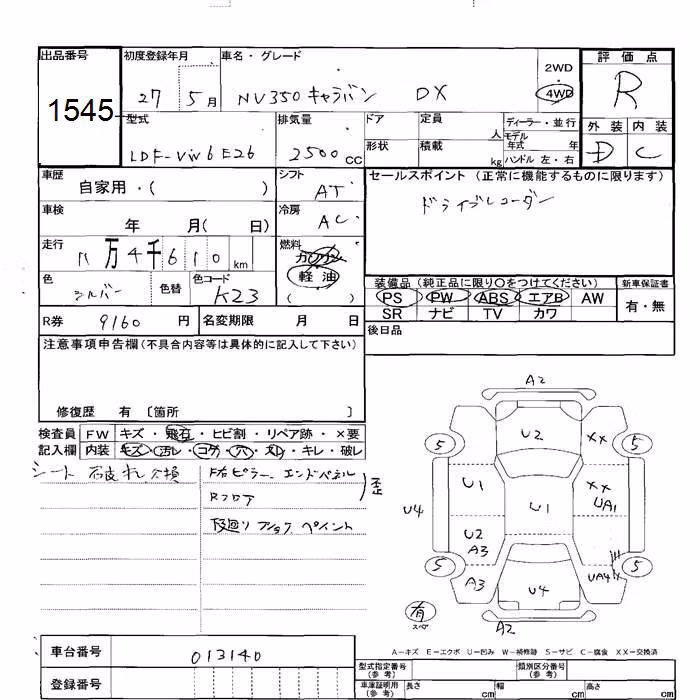 出品番号 初度登録年月 車名・グレード 2WD 評価点
1545 27 5月 NV350 キャラバン DX 4WD R
型式 排気量 ドア 定員 人 ディーラー・並行 外装 内装
LDF-VW6E26 2500 CC 形状 積載 kg モデル年式 年 ハンドル 左・右 D C
車歴 自家用・( ) シフト AT セールスポイント (正常に機能するものに限ります)
車検 年 月( 日) 冷房 AC ドライブレコーダー
走行 11万4千610 km 燃料 ガソリン
色 シルバー 色替 色コード K23 軽油 ( )
装備品 (純正品に限り○をつけてください) 新車保証書
PS PW ABS エアB AW 有・無
SR ナビ TV カワ
R券 9160 円 名変期限 月 日 後日品
注意事項申告欄(不具合内容等は具体的に記入して下さい)
修復歴 有 〔箇所 〕
検査員 FW キズ・飛石・ヒビ割・リペア跡・×要
記入欄 内装 キズ・汚レ・コゲ・穴・スレ・キレ・破レ
シート 破れ 欠損 F右ピラー エンドパネル 歪
Rフロア
下廻り ペイント
A2
U2 XX
5 5
U1 XX
UA1
U4 U1
U2
A3
5 5
A3 U4 UA4
有
スペア A2
A-キズ E-エクボ U-凹み W-補修跡 S-サビ C-腐食 XX-交換済
車台番号 013140 型式指定番号 (参考) 類別区分番号 (参考)
登録番号 車庫証明用 (参考) 長さ cm 幅 cm 高さ cm